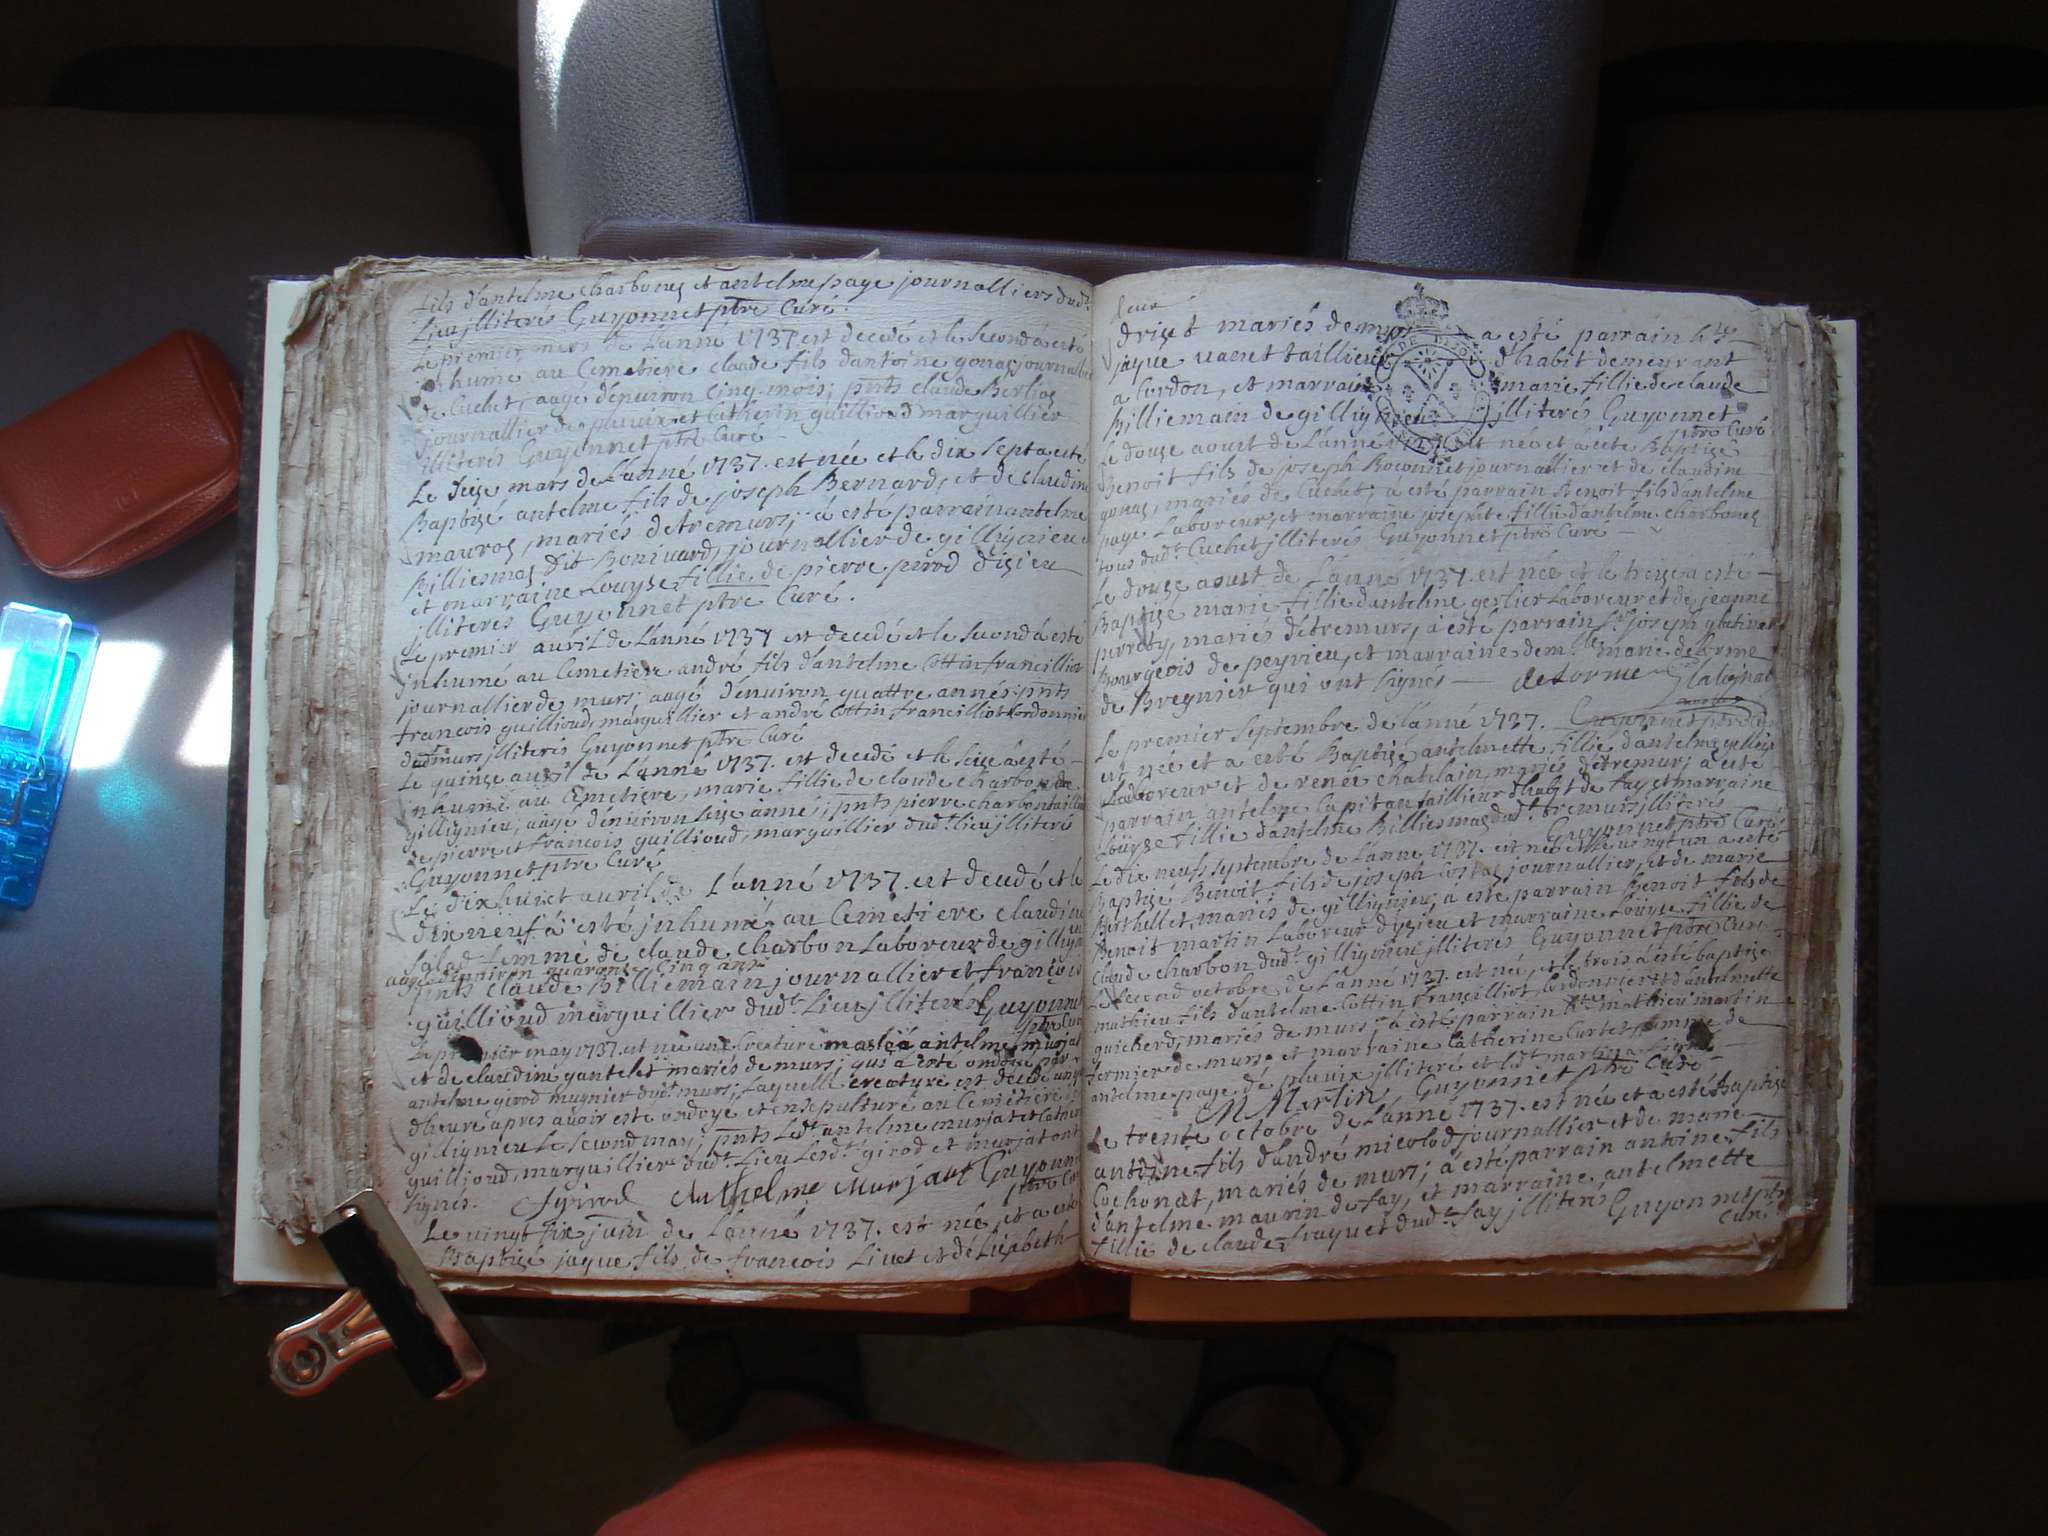 fils d'antelme charbones et antelme page journalliers dud.
lieu jlliteres Guyonnet ptre Curé.
Le premier mars de L'anné 1737 est decedé et le second à esté
jnhumé au Cemetiere claude fils d'antoine gonas journallier
de Cuchet, aagé d'environ cinq mois; pnts claude Berlios
journallier de pluvix et Catherin guillioud marguillier
jlliterés Guyonnet ptre Curé
Le seise mars de L'anné 1737. est née et le dix sept a esté
Baptisé antelme fils de joseph Bernard, et de claudine
mauros, mariés de tremurs; à esté parrain antelme
Billiemas dit Bonivard, journallier de gillignieu
et marraine Louyse fillie de pierre pirod d'isieu
jlliterés Guyonnet ptre Curé.
Le premier avril de L'anné 1737 est decedé et le second à esté
jnhumé au Cemetiere andré fils d'antelme Cottin francillion
journallier de murs; aagé d'environ quattre annés: pnts
francois guillioud, marguillier et andré Cottin francilliot Cordonnier
dud. murs jlliterés Guyonnet ptre Curé
Le quinse avril de L'anné 1737. est decedé et le seise à esté
jnhumé au Cemetiere, marie fillie de claude charbon de
gillignieu; aagé d'environ seise annés; pnts pierre charbon
de pierre et francois guillioud, marguillier dud. lieu jlliteré
Guyonnet ptre Curé
Le dixhuict avril de L'anné 1737. est decedé et le
dix neuf à esté jnhumé au Cemetiere claudine
femme de claude Charbon Laboreur de gillignieu
aagée d'environ quarante cinq ans
pnts claude Billiemain journallier et francois
guillioud marguillier dud. Lieu jlliterés Guyonnet
ptre Curé
Le premier may 1737. est née une Creature masle à antelme murjat
et de claudine gantelet mariés de murs; qui à esté ondoié par
antelme girod mugnier dud. murs, Laquelle creature est decedé
d'heure apres avoir esté ondoyé et ensepulturé au Cemetiere
gillignieu Le second may; pnts Led. antelme murjat et Catherin
guillioud, marguillier dud. Lieu Lesd. girod et murjat ont
signés. Anthelme Murjaut Guyonnet
ptre Curé
Le vingt six juin de L'anné 1737. est née, et a esté
Baptisé jaque fils de francois Livet et de Lisabeth
drivet mariés de murs a esté parrain
jaque vanet taillieur d'habit demeurant
a Cordon, et marraine marie fillie de claude
Billiemain de gillignieu jlliterés Guyonnet
ptre Curé
Le douse aoust de L'anné 1737 est née et à esté Baptisé
Benoit fils de joseph Boconnet journallier et de claudine
gonas, mariés de Cuchet; à esté parrain Benoit fils d'antelme
page Laboreur, et marraine josephte fillie d'antelme charbones
tous dud. Cuchet jlliterés Guyonnet ptre Curé
Le douse aoust de L'anné 1737. est née et le treise a esté
Baptisé marie fillie d'antelme gerlier Laboreur et de jeanne
perrety, mariés de tremurs; à esté parrain Sr. joseph glatinat
Bourgeois de peyrieu, et marraine dem.lle marie delorme
de Bregnier qui ont signés delorme
Guyonnet ptre Curé
Le premier septembre de L'anné 1737.
est née et a esté Baptisé antelmette fillie d'antelme
Laboreur et de renée chatelain, mariés de tremurs; a esté
parrain antelme Capitan taillieur d'habit de fay et marraine
Louyse fillie d'antelme Billiemas dud. tremurs jlliterés
Guyonnet ptre Curé
Le dix neuf septembre de L'anné 1737. est née et le vingt un a esté
Baptisé Benoit fils de joseph Costaz journallier, et de marie
Berthellet, mariés de gillignieu; à esté parrain Benoit fils de
Benoit martin Laboreur d'ysieu et marraine Louyse fillie de
claude Charbon dud. gillignieu jlliterés Guyonnet ptre Curé
Le second octobre de L'anné 1737. est né, et le trois à esté baptisé
mathieu fils d'antelme Cottin francilliot, Cordonnier et d'antelmette
guicherd, mariés de murs; à esté parrain mathieu martin
fermier de murs, et marraine Catherine Curtet femme de
antelme page, de pluvix jlliteré et led. martin a signé
M Martin Guyonnet ptre Curé
Le trente octobre de L'anné 1737. est né et a esté Baptisé
antoine fils d'andré micolod journallier et de marie
Cochonat, mariés de murs; à esté parrain antoine fils
d'antelme maurin de fay, et marraine antelmette
fillie de claude fraquet dud. fay jlliterés Guyonnet ptre
Curé